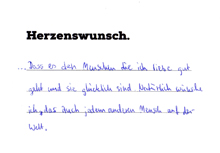 Herzenswunsch.
... Dass es den Menschen die ich liebe gut
geht und sie glücklich sind Natürlich wünsche
ich, das auch jedem anderen Mensch auf der
Welt.